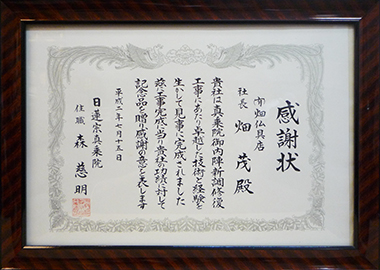 感謝状
㈲畑仏具店
社長 畑茂殿
貴社は真乗院御内陣新調修復
工事にあたり卓越した技術と経験を
生かして見事に完成されました
茲に工事完成に当り貴社の功績に対して
記念品を贈り感謝の意を表します
平成二年七月十五日
日蓮宗真乗院
住職 森慈明